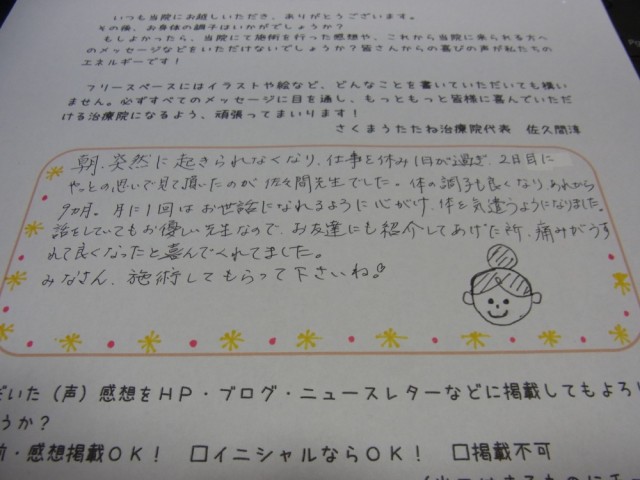 いつも当院にお越しいただき、ありがとうございます。
その後、お身体の調子はいかがでしょうか？
もしよかったら、当院にて施術を行った感想や、これから当院に来られる方へ
のメッセージなどをいただけないでしょうか？皆さんからの喜びの声が私たちの
エネルギーです！
フリースペースにはイラストや絵など、どんなことを書いていただいても構い
ません。必ずすべてのメッセージに目を通し、もっともっと皆様に喜んでいただ
ける治療院になるよう、頑張ってまいります！
さくまうたたね治療院代表　佐久間淳
朝、突然に起きられなくなり、仕事を休み1日が過ぎ、2日目に
やっとの思いで見て頂いたのが佐々間先生でした。体の調子も良くなり、あれから
9ヵ月。月に1回はお世話になれるように心がけ、体を気遣うようになりました。
話をしていてもお優しい先生なので、お友達にも紹介してあげた所、痛みがうす
れて良くなったと喜んでくれてました。
みなさん、施術してもらって下さいね
だいた（声）感想をＨＰ・ブログ・ニュースレターなどに掲載してもよろし
うか？
前・感想掲載ＯＫ！　□イニシャルならＯＫ！　□掲載不可